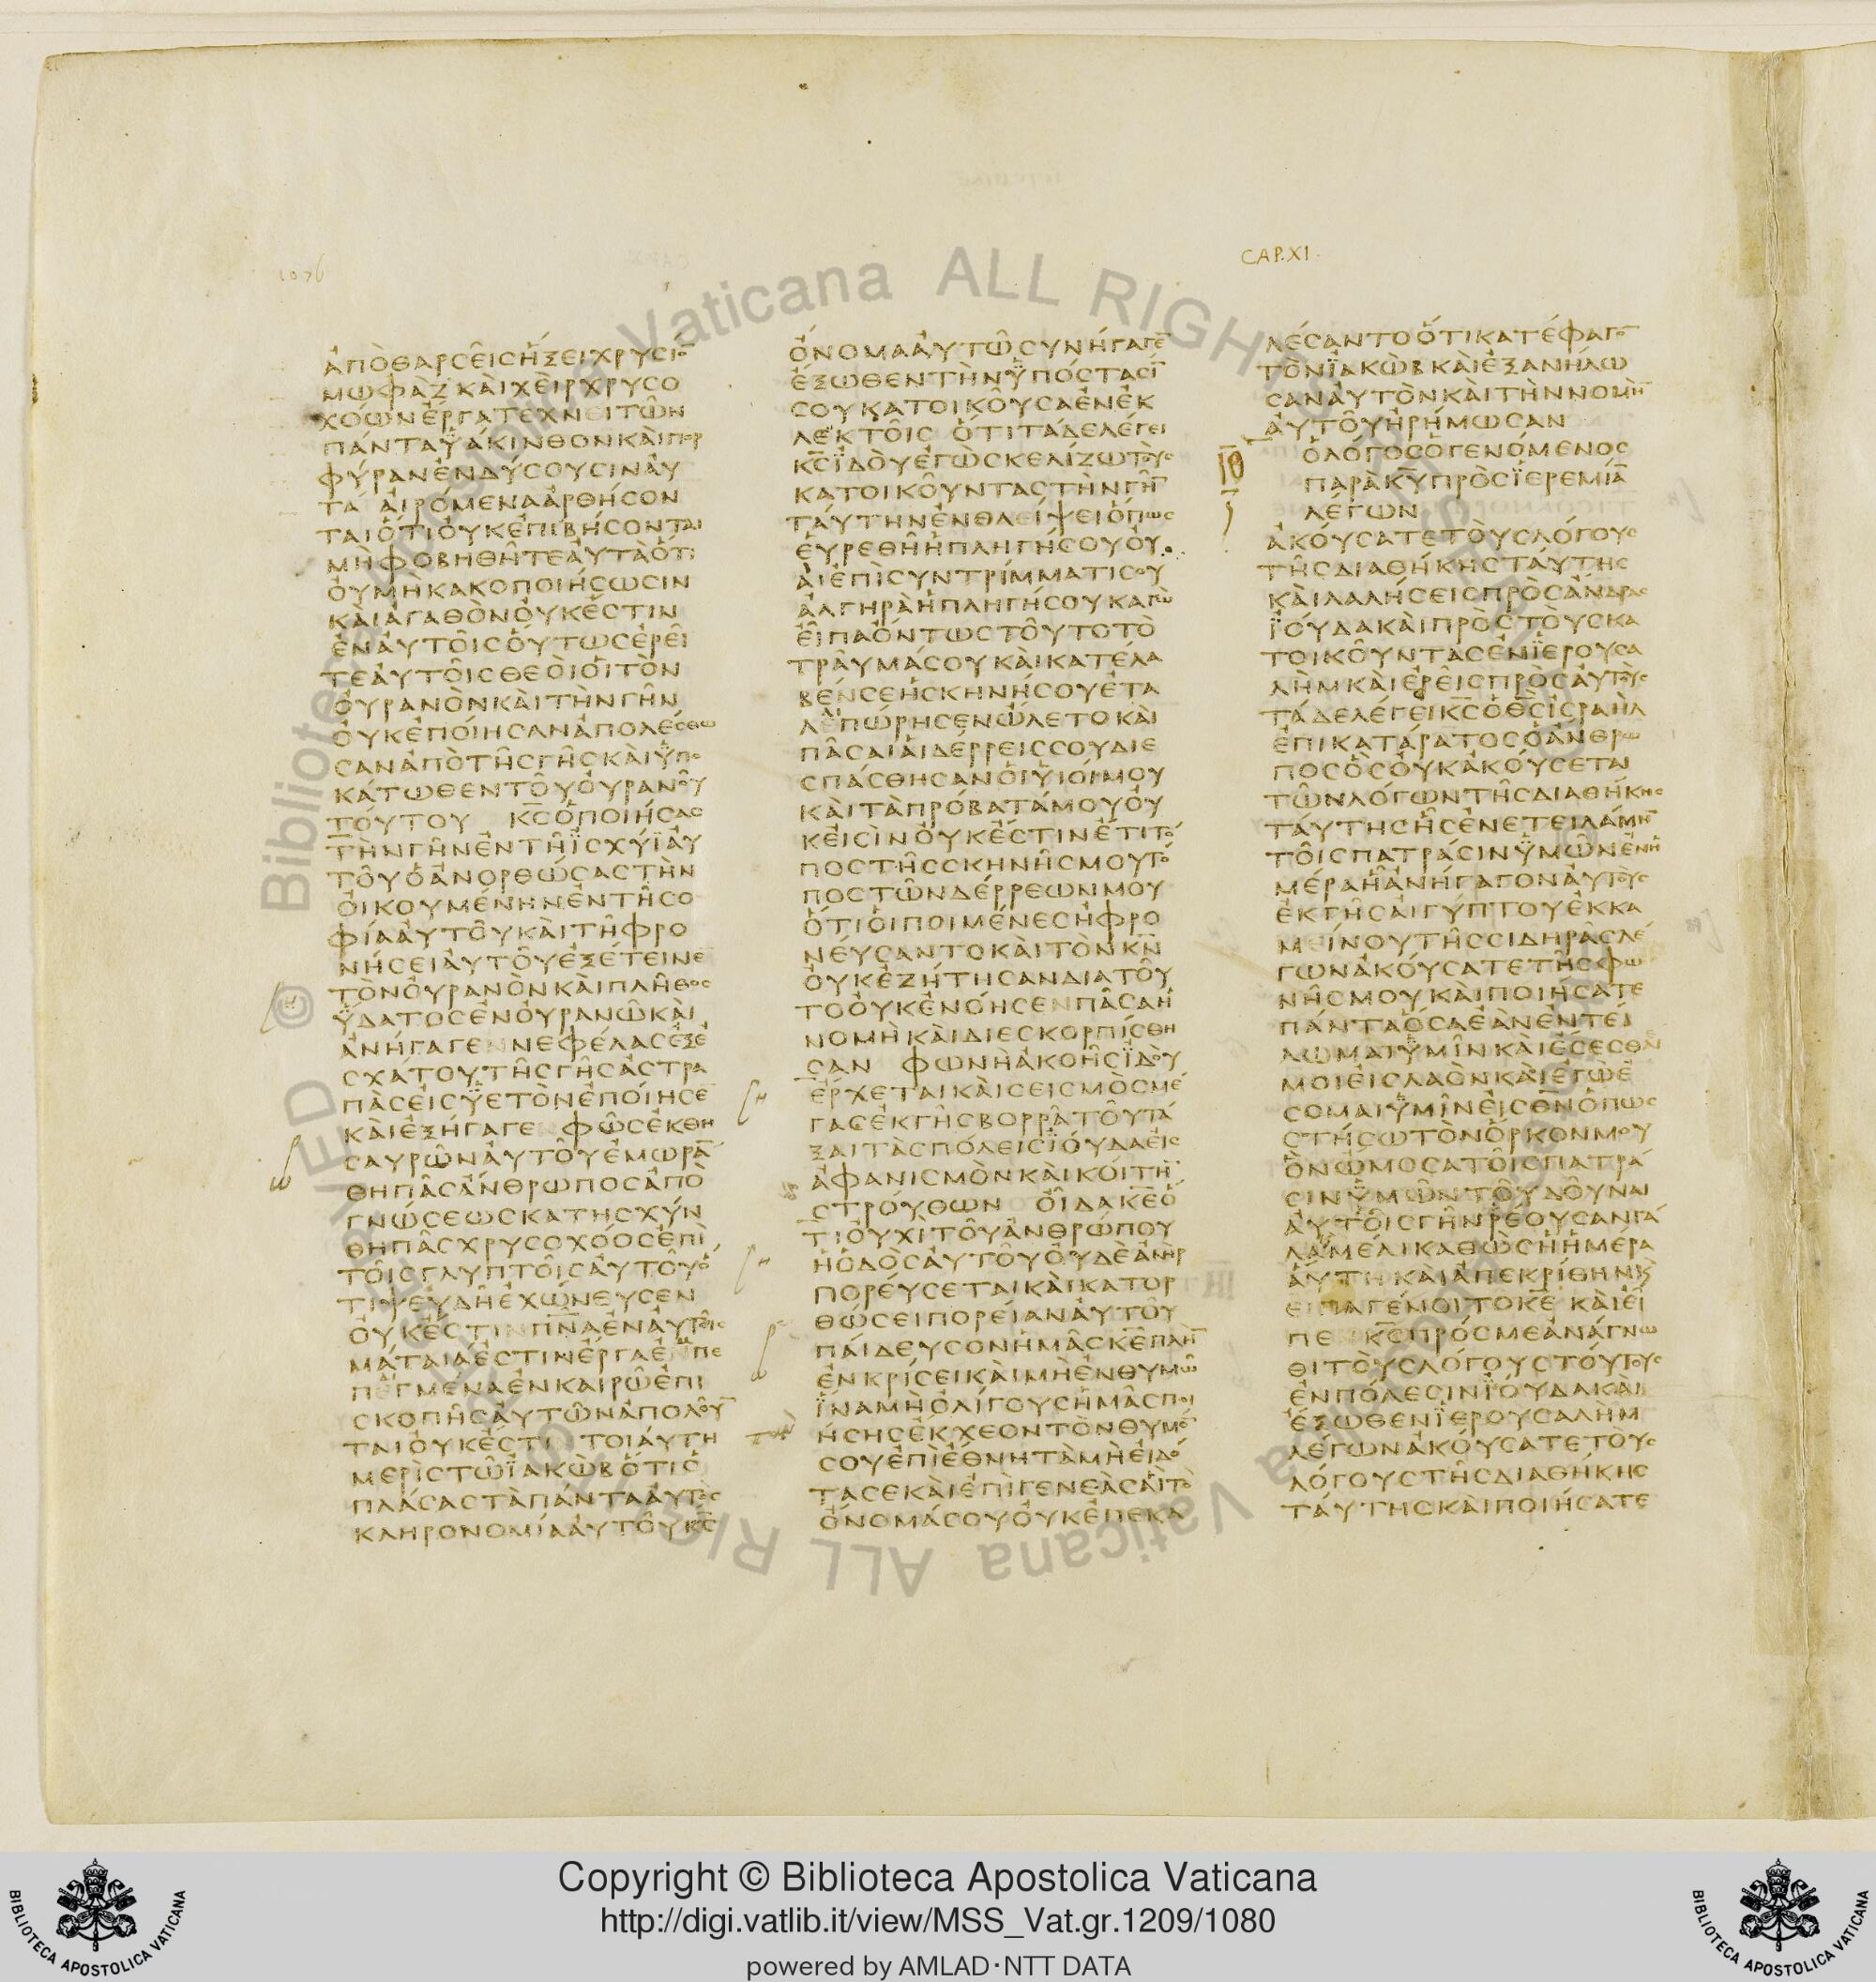 1076
CAP.XI.
ἀπὸθαρσεῖσἥξειχρυσίο̅
μωφὰζκαὶχεὶρχρυσο
χόωνἔργατεχνειτῶν
πάνταὑάκινθονκαὶπορ
φύρανἐνδύσουσιναὐ
τά αἰρόμεναἀρθήσον
ταιὅτιοὐκἐπιβήσονται
μὴφοβηθῆτεαὐτὰὅτι
οὐμὴκακοποιήσωσιν
καὶἀγαθὸνοὐκἔστιν
ἐναὐτοῖςοὕτωςἐρεῖ
τεαὐτοῖςθεοὶοἳτὸν
οὐρανὸνκαὶτὴνγῆν
οὐκἐποίησανἀπολέσθω
σανἀπὸτῆςγῆςκαὶὑπο
κάτωθεντοῦοὐρανοῦ
τούτου κ̅ς̅ὁποιήσας
τὴνγῆνἐντῇἰσχύϊαὐ
τοῦὁἀνορθώσαςτὴν
οἰκουμένηνἐντῇσο
φίααὐτοῦκαὶτῇφρο
νήσειαὐτοῦἐξέτεινε
τὸνοὐρανὸνκαὶπλῆθος
ὕδατοςἐνοὐρανῶκαὶ
ἀνήγαγεννεφέλαςἐξἐ
σχάτουτῆςγῆςἀστρα
πὰςεἰςὑετὸνἐποίησε
καὶἐξήγαγε φῶςἐκθη
σαυρῶναὐτοῦἐμωρά̅
θηπᾶςἄνθρωποςἀπὸ
γνώσεωςκατησχύν
θηπᾶςχρυσοχόοςἐπὶ
τοῖςγλυπτοῖςαὐτοῦὅ
τιψευδῆἐχώνευσεν
οὐκἔστινπ̅ν̅αἐναὐτοῖς
μάταιάἐστινἔργαἐμπε
πεγμέναἐνκαιρῶἐπι
σκοπῆςαὐτῶνἀπολοῦ̅
ταιοὐκἔστι τοιαύτη
μερὶςτῶϊακὼβὅτιὁ
πλάσαςτὰπάντααὐτὸς
κληρονομίααὐτοῦκ̅ς̅
ὄνομααὐτῶσυνήγαγε̅
ἔξωθεντὴνὑπόστασί̅
σουκατοικοῦσαἐνἐκ
λεκτοῖς ὅτιτάδελέγει
κ̅ς̅ἰδοὺἐγὼσκελίζωτοὺς
κατοικοῦνταςτὴνγῆ̅
ταύτηνἐνθλείψειὅπως
εὑρεθῆἡπληγήσουοὐ
αἰἐπὶσυντρίμματισου
ἀλγηρὰἡπληγήσουκαγὼ
εἶπαὄντωςτοῦτοτὸ
τραῦμάσουκαὶκατέλα
βένσεἡσκηνήσουἐτα
λαιπώρησενὤλετοκαὶ
πᾶσαιαἱδέρρειςσουδιε
σπάσθησανοἱυἱοίμου
καὶτὰπρόβατάμουοὐ
κεἰσὶνοὐκἔστινἔτιτό
ποςτῆςσκηνῆςμουτό
ποςτῶνδέρρεωνμου
ὅτιοἱποιμένεςἠφρο
νεύσαντοκαὶτὸνκ̅ν̅
οὐκἐζήτησανδιατοῦ
τοοὐκἐνόησενπᾶσαἡ
νομὴκαὶδιεσκορπίσθη
σαν φωνὴἀκοῆςἰδοὺ
ἔρχεταικαὶσεισμὸςμέ
γαςἐκγῆςβορρᾶτοῦτά
ξαιτὰςπόλειςἰούδαεἰς
ἀφανισμὸνκαὶκοίτη̅
στρούθων οἶδακ̅ε̅ὅ
τιοὐχὶτοῦἀνθρώπου
ἡὁδὸςαὐτοῦοὐδὲἀνὴρ
πορεύσεταικαὶκατορ
θώσειπορείαναὐτοῦ
παίδευσονἡμᾶςκ̅ε̅πλὴ̅
ἐνκρίσεικαὶμὴἐνθυμῶ
ἵναμὴὀλίγουςἡμᾶςποι
ήσηςἔκχεοντὸνθυμό̅
σουἐπὶἔθνητὰμὴεἰδό
τασεκαὶἐπὶγενεὰςαἳτὸ
ὄνομάσουοὐκἐπεκα
λέσαντοὅτικατέφαγο̅
τὸνϊακὼβκαὶἐξανήλω
σαναὐτὸνκαὶτὴννομὴ̅
αὐτοῦἠρήμωσαν
ι̅θ̅
ὁλόγοςὁγενόμενος
παρὰκ̅υ̅πρὸςἰερεμία̅
λέγων
ἀκούσατετοὺςλόγους
τῆςδιαθήκηςταύτης
καὶλαλήσειςπρὸςἄνδρας
ἰούδακαὶπρὸςτοὺςκα
τοικοῦνταςἐνἰερουσα
λὴμκαὶἐρεῖςπρὸςαὐτοὺς
τάδελέγεικ̅ς̅ὁθ̅ς̅ἰσραὴλ
ἐπικατάρατοςὁἄνθρω
ποςὃςοὐκἀκούσεται
τῶνλόγωντῆςδιαθήκης
ταύτηςἧςἐνετειλάμη̅
τοῖςπατράσινὑμῶνἐνἡ
μέραἧἀνήγαγοναὐτοὺς
ἐκγῆςαἰγύπτουἐκκα
μείνουτῆςσιδηρᾶςλέ
γωνἀκούσατετῆςφω
νῆςμουκαὶποιήσατε
πάνταὅσαἐὰνἐντεί
λωμαιὑμῖνκαὶἔσεσθαί
μοιεἰςλαὸνκαὶἐγὼἔ
σομαιὑμῖνεἰςθ̅ν̅ὅπως
στήσωτὸνὅρκονμου
ὃνὤμοσατοῖςπατρά
σινὑμῶντοῦδοῦναι
αὐτοῖςγῆνῥέουσανγά
λακαὶμέλικαθὼςἡἡμέρα
αὕτηκαὶἀπεκρίθηνκ
εἶπαγένοιτοκ̅ε̅ καὶεἶ
πε κ̅ς̅πρόςμεἀνάγνω
θιτοὺςλόγουςτούτους
ἐνπόλεσινἰούδακαὶ
ἔξωθενἰερουσαλὴμ
λέγωνἀκούσατετοὺς
λόγουςτῆςδιαθήκης
ταύτηςκαὶποιήσατε
© Biblioteca Vaticana ALL RIGHTS RESERVED
Copyright © Biblioteca Apostolica Vaticana
http://digi.vatlib.it/view/MSS_Vat.gr.1209/1080
powered by AMLAD·NTT DATA
BIBLIOTECA APOSTOLICA VATICANA
BIBLIOTECA APOSTOLICA VATICANA